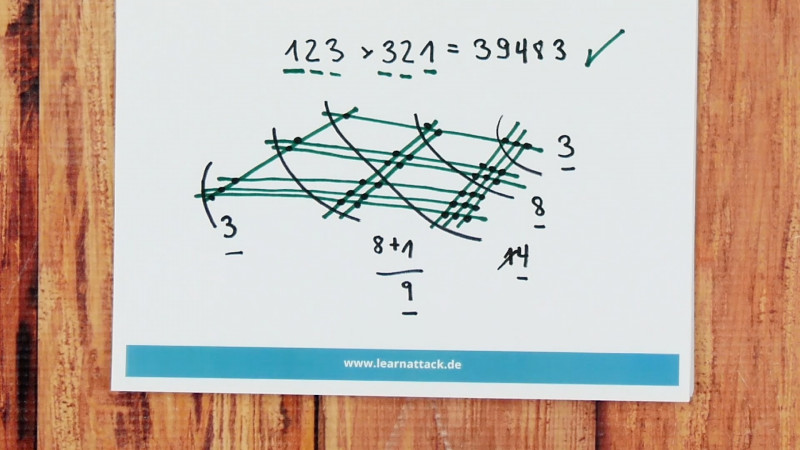 123 × 321 = 39483 ✓
3
8
14
8+1
9
3
www.learnattack.de